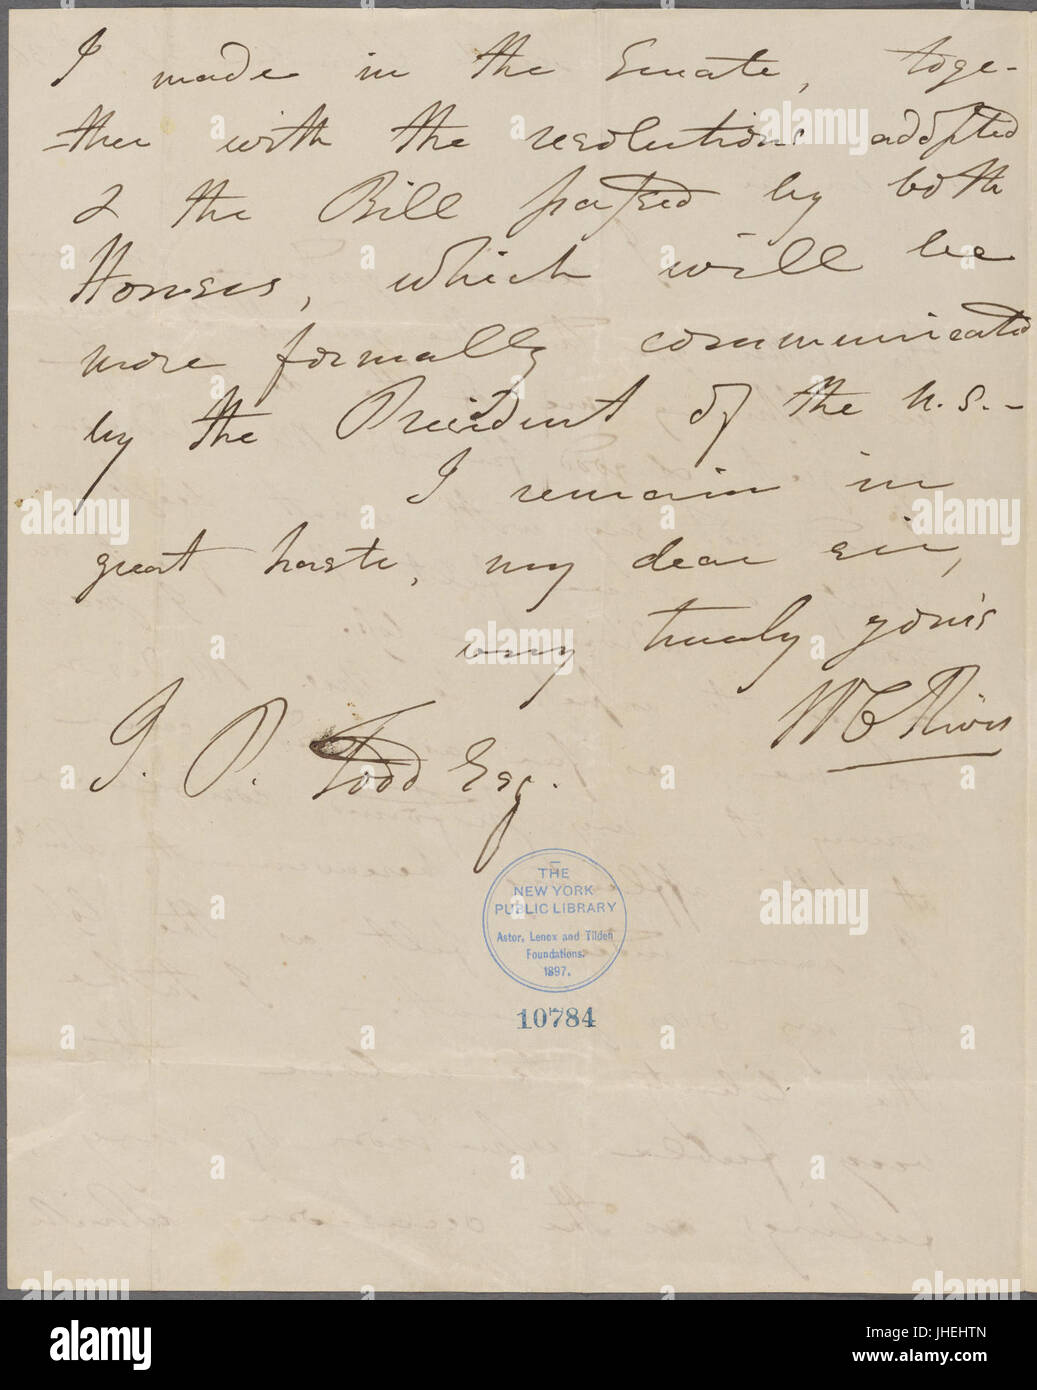 I made in the Senate, toge-
ther with the resolutions adopted
& the Bill passed by both
Houses, which will be
more formally communicated
by the President of the U.S.-
I remain in
great haste, my dear sir,
very truly yours
W C Rives
J. P. Todd Esq.
THE
NEW YORK
PUBLIC LIBRARY
Astor, Lenox and Tilden
Foundations.
1897.
10784
alamy
Image ID: JHEHTN
www.alamy.com